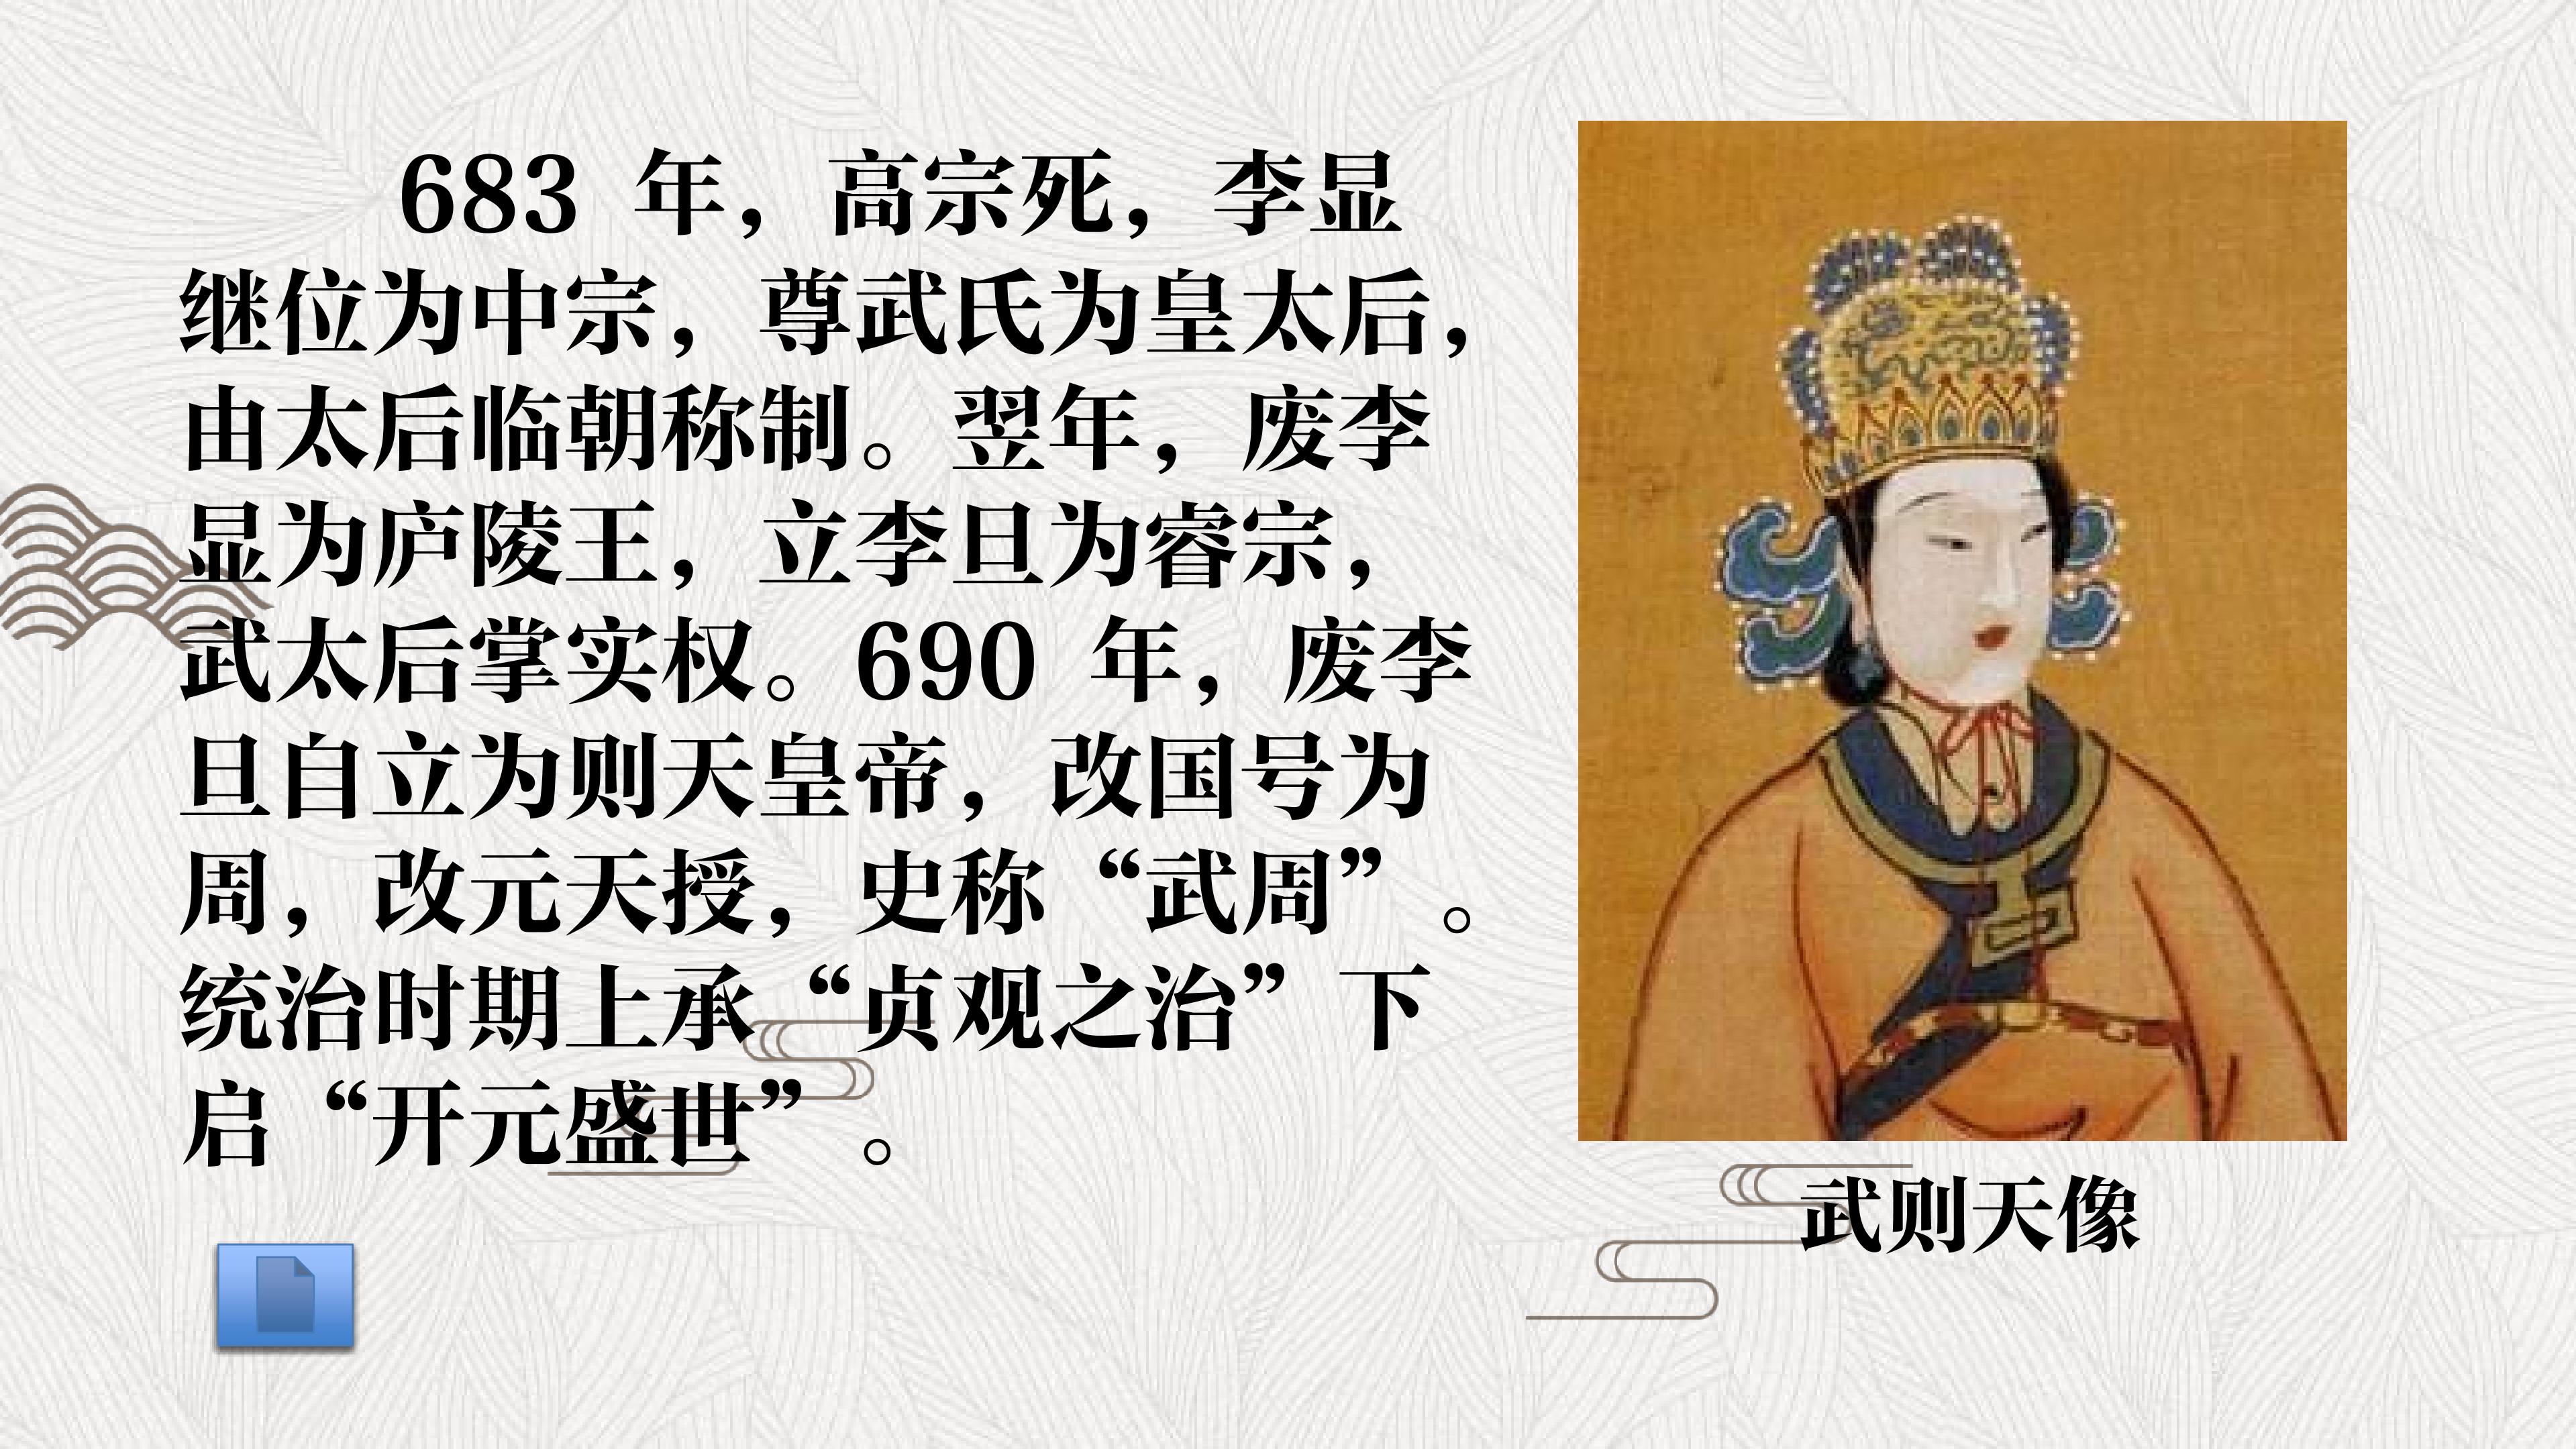 683 年，高宗死，李显
继位为中宗，尊武氏为皇太后，
由太后临朝称制。翌年，废李
显为庐陵王，立李旦为睿宗，
武太后掌实权。690 年，废李
旦自立为则天皇帝，改国号为
周，改元天授，史称“武周”。
统治时期上承“贞观之治”下
启“开元盛世”。
武则天像